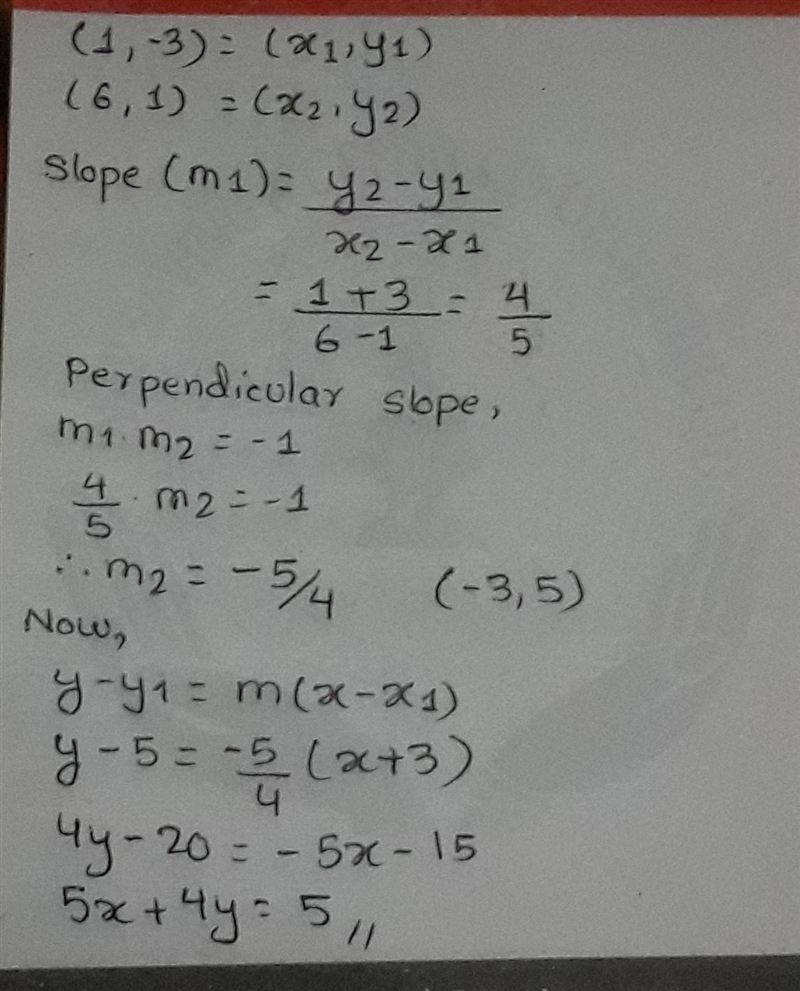 (1,-3) = (x1,y1)
(6,1) = (x2,y2)
Slope (m1) = y2-y1 / x2-x1
= 1+3 / 6-1 = 4/5
Perpendicular slope,
m1.m2 = -1
4/5 . m2 = -1
∴ m2 = -5/4 (-3,5)
Now,
y-y1 = m(x-x1)
y-5 = -5/4 (x+3)
4y-20 = -5x-15
5x+4y = 5 //